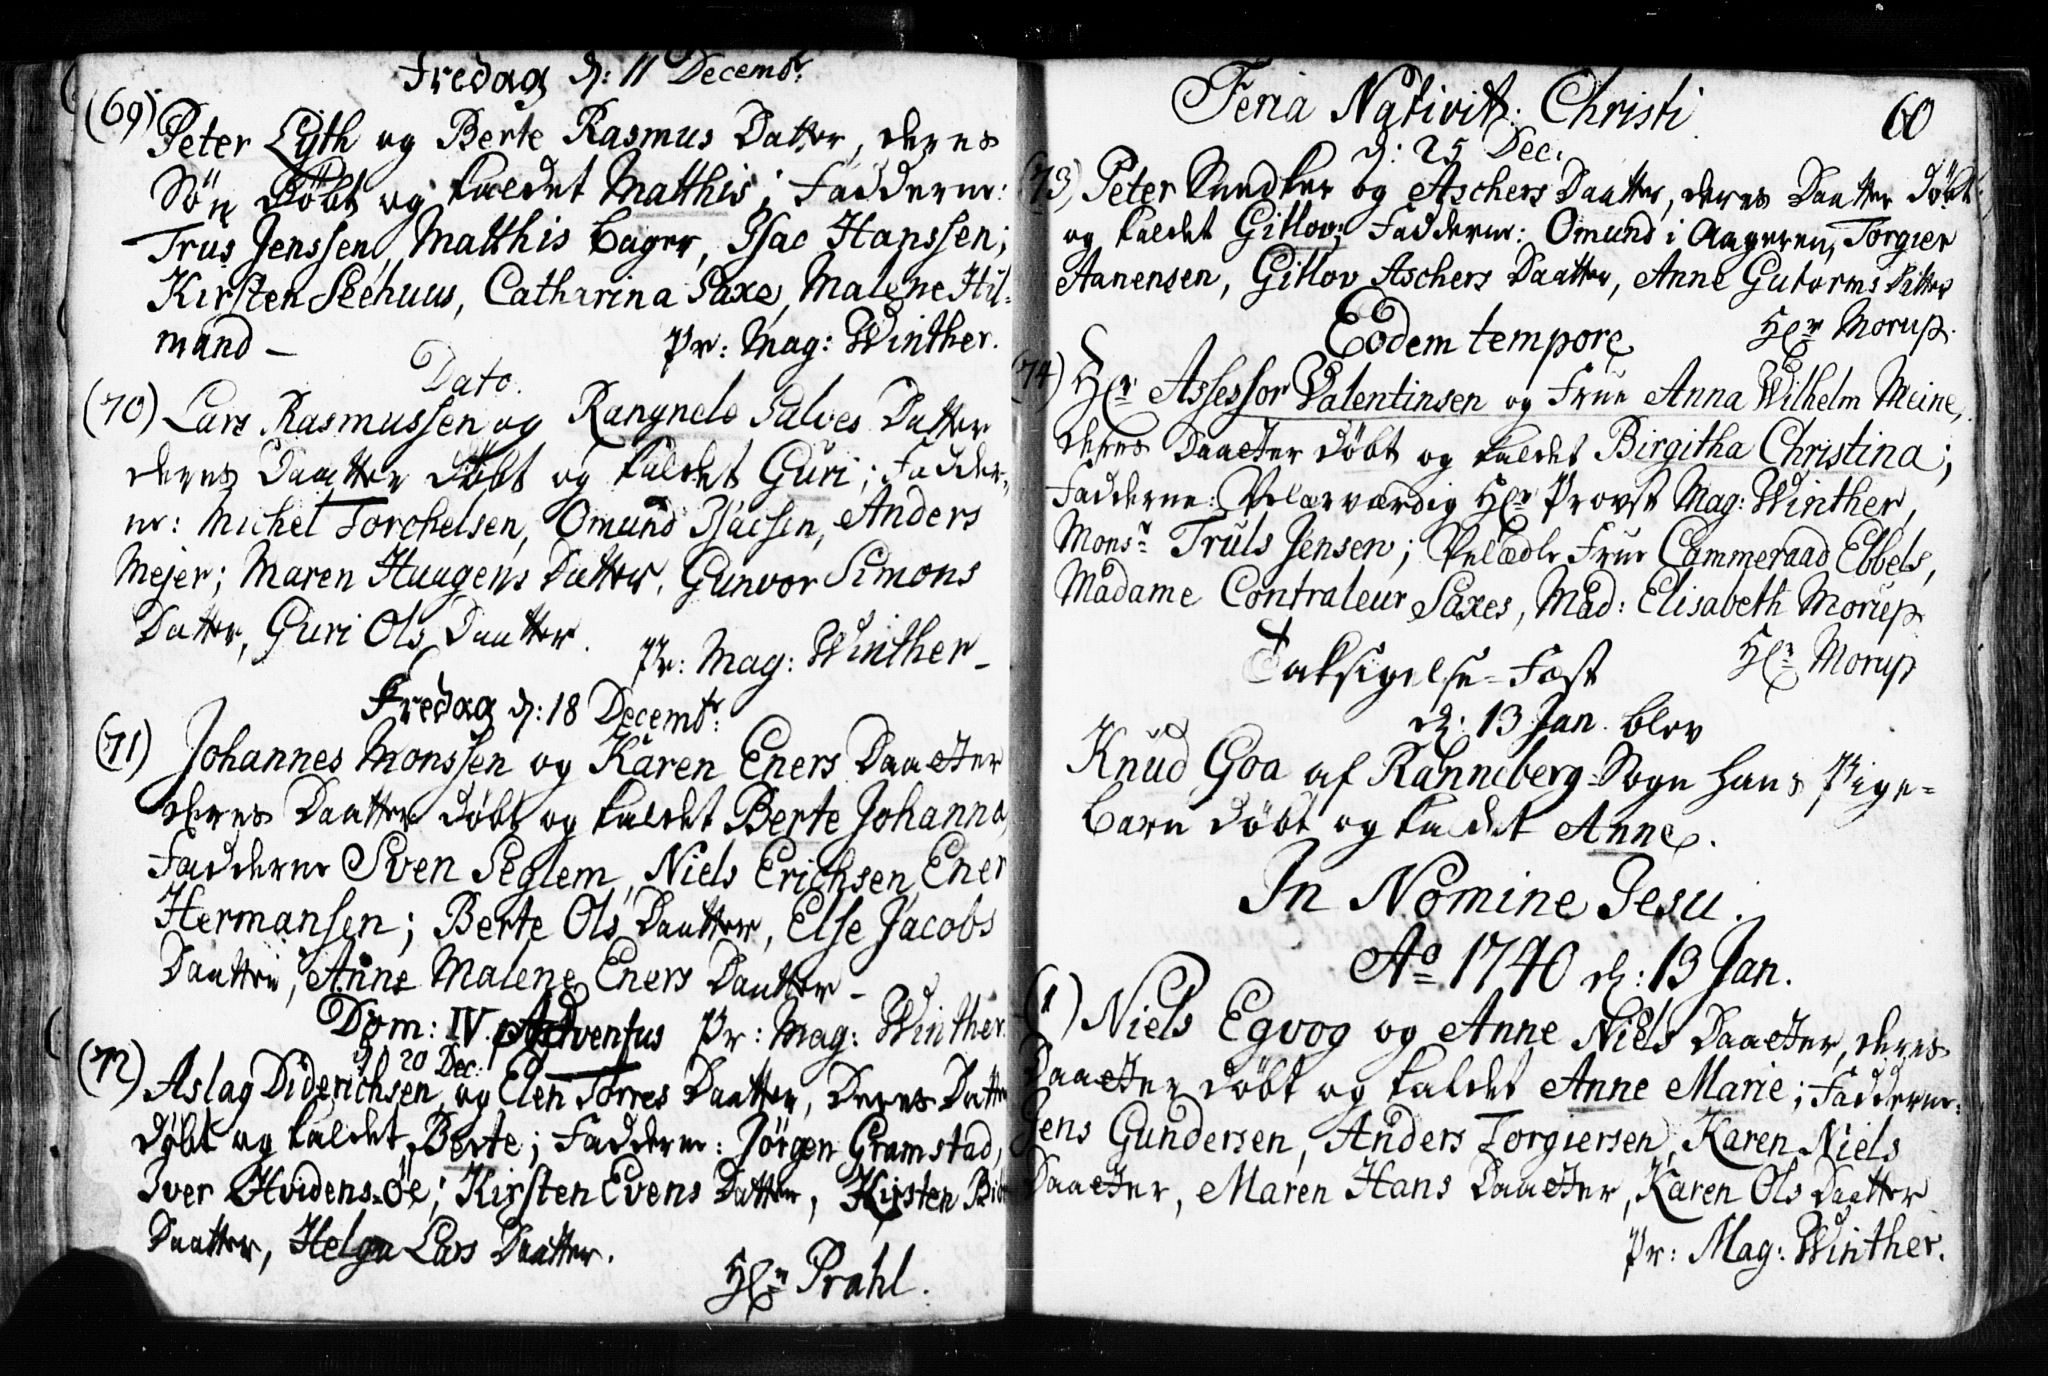 Fredag d: 11 Decembr:
(69) Peter Lÿth og Berte Rasmus Datter, deres
Søn Døbt og kaldet Matthis; Fadderne:
Trus Jenssen, Matthis Bager, Isac Hanssen;
Kirsten Seehuus, Catharina Saxe, Malene Hil-
mand –
Pr: Mag: Winther.
Dato.
(70) Lars Rasmussen og Rangnele Salves Datter
deres Daatter døbt og kaldet Guri; Fadder-
ne: Michel Torchelsen, Omund Isacsen, Anders
Mejer; Maren Haagens Datter, Gunvor Simons
Datter, Guri Ols Daatter.
Pr: Mag: Winther –
Fredag d: 18 Decembr:
(71) Johannes Monssen og Karen Eners Daatter
deres Daatter døbt og kaldet Berte Johanna,
Fadderne Sven Seglem, Niels Erichsen, Ener
Hermansen; Berte Ols Daatter, Else Jacobs
Daatter, Anne Malene Eners Daatter –
Pr: Mag: Winther.
Dom: IV. Adventus
d: 20 Dec:
(72) Aslag Diderichsen og Elen Torres Daatter, Deres Datter
døbt og kaldet Berte; Fadderne: Jörgen Gramstad,
Iver Hvidens-Öe; Kirsten Evens Datter, Kirsten
Daatter, Helga Lars Daatter.
Hr Prahl.
60
Feria Nativit: Christi
d: 25 Dec:
(73) Peter Smedker og Aschers Daatter, deres Daatter døbt
og kaldet Gitlov; Fadderne: Omund i Aageren, Torgier
Aanensen, Gitlov Aschers Daatter, Anne Gutorms Datter
Hr Morup.
Eodem tempore
(74) Hr Assessor Valentinsen og Frue Anna Wilhelm Meine,
deres Daatter døbt og kaldet Birgitha Christina;
Fadderne: Velærværdig Hr Provst Mag: Winther,
Monsr Truls Jensen; Velædle Frue Cammeraad Ebbels,
Madame Contraleur Saxes, Mad: Elisabeth Morup
Hr Morup
Taksigelse-Fæst
d: 13 Jan. blev
Knud Goa af Ranneberg-Sogn hans Pige-
barn døbt og kaldet Anne.
In Nomine Jesu.
Ao 1740 d: 13 Jan.
(1) Niels Egvog og Anne Niels Daatter, deres
Daatter døbt og kaldet Anne Marie; Fadderne:
Jens Gundersen, Anders Torgiersen, Karen Niels
Daatter, Maren Hans Daatter, Karen Ols Daatter
Pr: Mag: Winther.